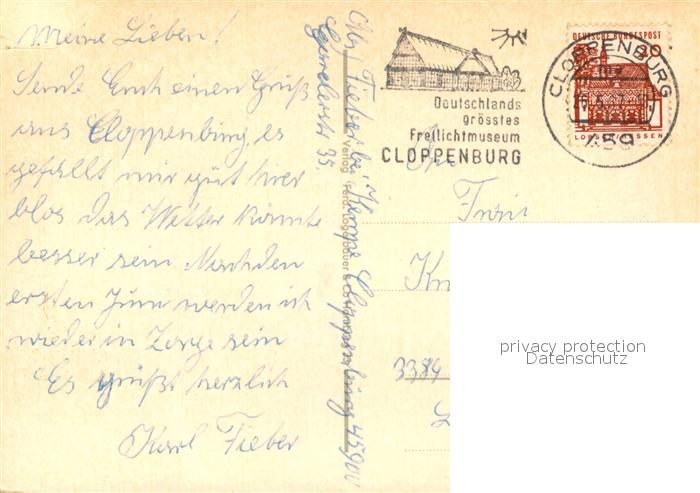 Meine Lieben!
Sende Euch einen Gruß
aus Cloppenburg, es
gefällt mir gut hier
blos das Wetter könnte
besser sein. Nach den
ersten Juni werden ich
wieder in Zorge sein
Es grüßt herzlich
Karl Fieber
Fieber bei Kempe Cloppenburg 45900
35.
Verlag Ferd. Lagerbauer & Co
Deutschlands
grösstes
Freilichtmuseum
CLOPPENBURG
CLOPPENBURG
459
DEUTSCHE BUNDESPOST
20
LORSCH/HESSEN
3384
privacy protection
Datenschutz